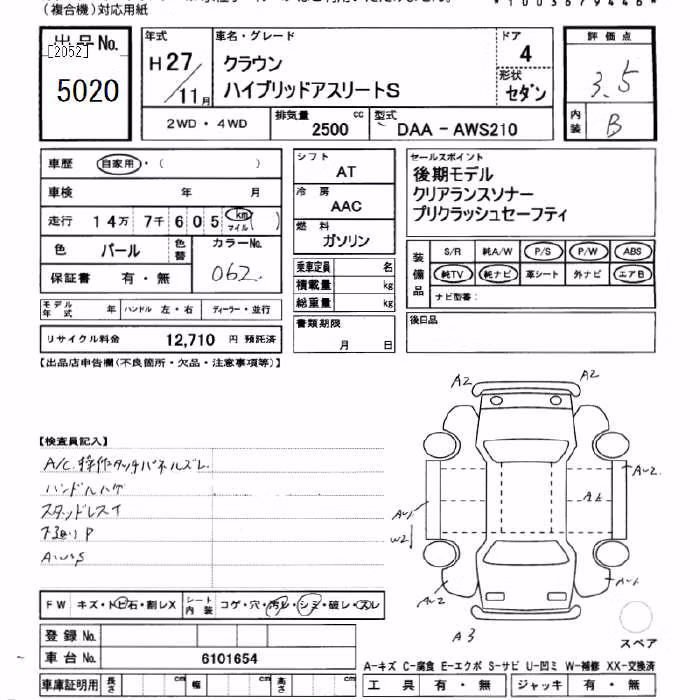 (複合機)対応用紙
*1003679446*
出品No.
[2052]
5020
年式
H27/11月
車名・グレード
クラウン
ハイブリッドアスリートS
ドア
4
形状
セダン
評価点
3.5
内装
B
2WD・4WD
排気量
2500 cc
型式
DAA - AWS210
車歴 自家用・( )
車検 年 月
走行 14万 7千 605 km マイル ( )
色 パール 色替
カラーNo.
062
保証書 有・無
モデル年式 年 ハンドル 左・右 ディーラー・並行
リサイクル料金 12,710 円 預託済
シフト
AT
冷房
AAC
燃料
ガソリン
乗車定員 名
積載量 kg
総重量 kg
書類期限
月 日
セールスポイント
後期モデル
クリアランスソナー
プリクラッシュセーフティ
装備品
S/R 純A/W P/S P/W ABS
純TV 純ナビ 革シート 外ナビ エアB
ナビ型番:
後日品
【出品店申告欄(不良箇所・欠品・注意事項等)】
【検査員記入】
A/C.操作タッチパネルズレ
ハンドルハゲ
スタッドレスT
下廻りP
A2
A2
AU2
A1
AU1
W2
AU2
AU1
A3
スペア
FW キズ・トビ石・割レX
シート内装 コゲ・穴・汚レ・シミ・破レ・スレ
登録No.
車台No. 6101654
車庫証明用 長さ cm 幅 cm 高さ cm
A-キズ C-腐食 E-エクボ S-サビ U-凹ミ W-補修 XX-交換済
工具 有・無 ジャッキ 有・無